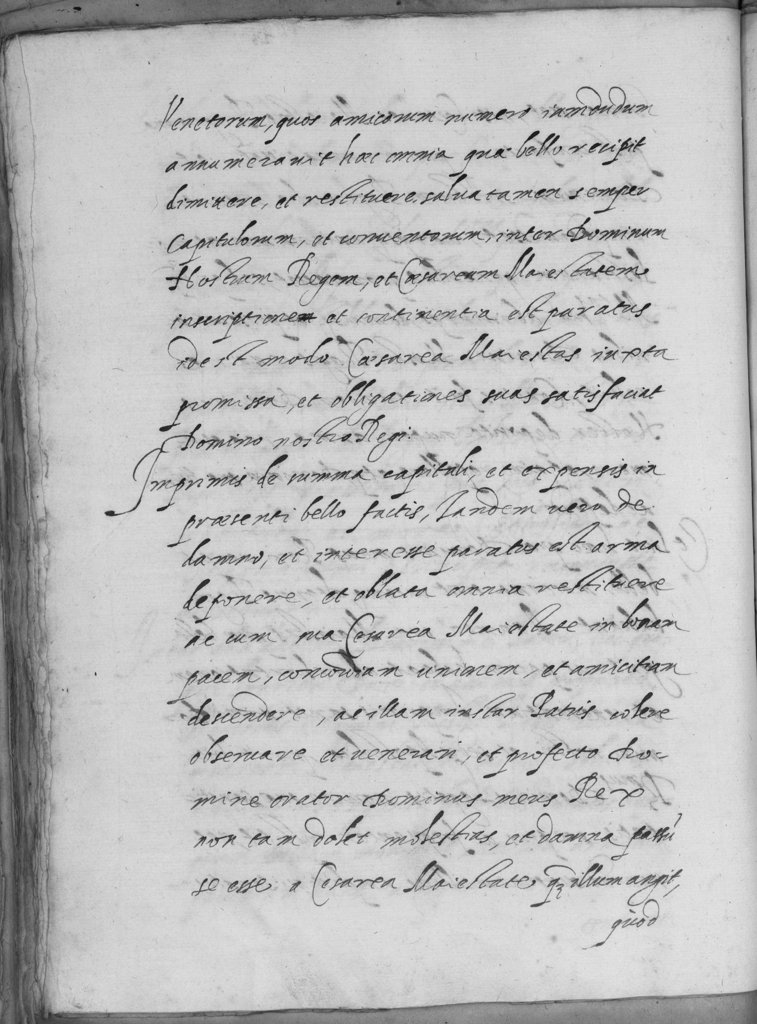 Venetorum, quos amicorum numero inmondum
annumerauit hæc omnia quæ bello recipit
dimittere, et restituere, salua tamen semper
Capitulorum, et conuentorum, inter Dominum
Nostrum Regem, et Cæsaream Maiestatem
inscriptione et continentia est paratus
idest modo Cæsarea Maiestas iuxta
promissa, et obligationes suas satisfaciat
Domino nostro Regi
Imprimis de summa capituli, et expensis in
præsenti bello factis, Tandem uero de
damno, et interesse paratus est arma
deponere, et oblata omnia restituere
ac cum sua Cesarea Maiestate in bonam
pacem, concordiam unionem, et amicitiam
descendere, ac illam instar Patris colere
obseruare et uenerari, et profecto Do-
mine orator Dominus meus Rex
non tam dolet molestias, et damna passũ
se esse a Cesarea Maiestate, ꝙ illum angit,
quod